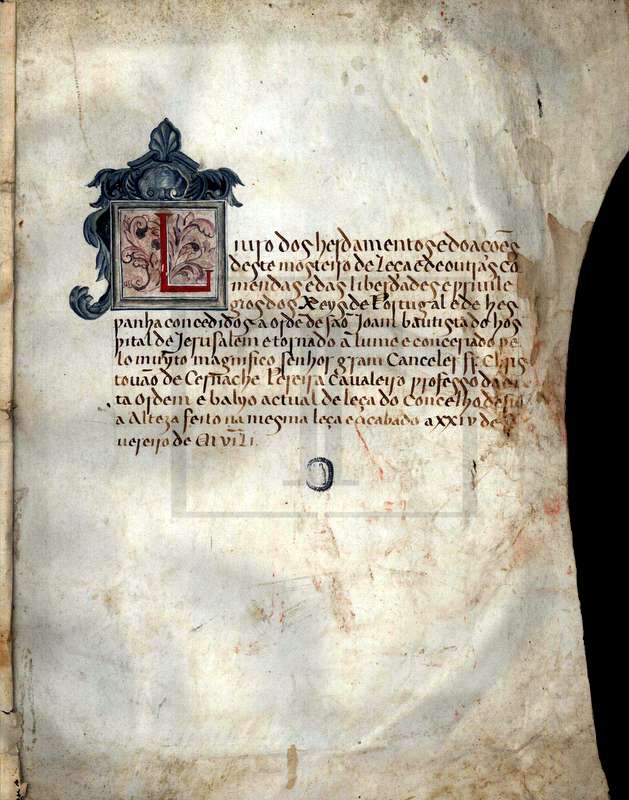 Liuro dos herdamentos e doacões
deste mosteiro de leça e de outras co
mendas e das liberdades e priuile
gios dos Reys de Portugal e de hes
panha concedidos à ordẽ de são Ioam bautista do hos
pital de Jerusalem e tornado à lume e concertado pe
lo muyto magnifico senhor gram Canceler fr Chris
touão de Cernache Pereira Caualeiro professo da
ta ordem e balyo actual de leça do Concelho de
a Alteza feito na mesma leça e acabado a XXIV de
uereiro de